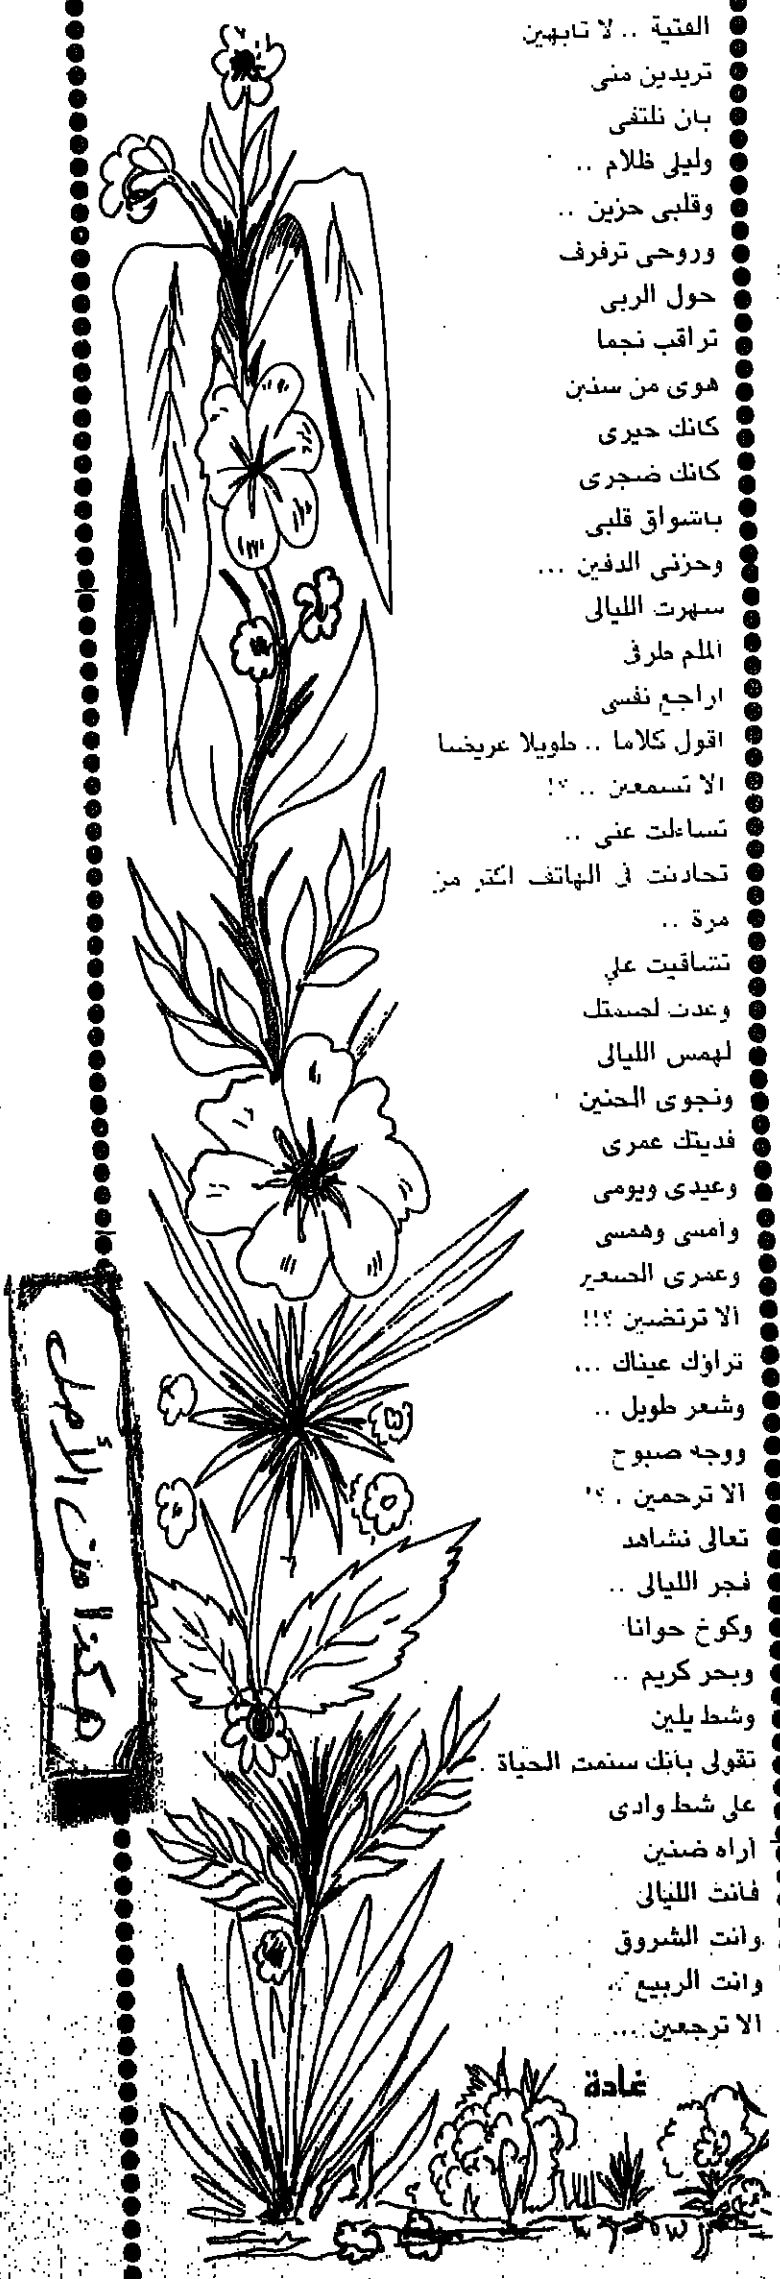 الفتية .. لا تابهين
تريدين منى
بان نلتقى
وليلى ظلام ..
وقلبى حزين ..
وروحى ترفرف
حول الربى
تراقب نجما
هوى من سنين
كانك حيرى
كانك ضجرى
باشواق قلبى
وحزنى الدفين ...
سهرت الليالى
ألملم طرفى
اراجع نفسى
اقول كلاما .. طويلا عريضا
الا تسمعين .. ؟!
تساءلت عنى ..
تحادثت فى الهاتف اكثر من
مرة ..
تشاقيت على
وعدت لصمتك
لهمس الليالى
ونجوى الحنين
فديتك عمرى
وعيدى ويومى
وأمسى وهمسى
وعمرى الصغير
ألا ترتضين ؟!!
تراؤك عيناك ...
وشعر طويل ..
ووجه صبوح
ألا ترحمين . ؟!
تعالى نشاهد
فجر الليالى ..
وكوخ حوانا
وبحر كريم ..
وشط يلين
تقولى بأنك سئمت الحياة .
على شط وادى
أراه ضنين
فأنت الليالى
وانت الشروق
وانت الربيع ..
الا ترجعين ...
غادة
هكذا مات الأمل